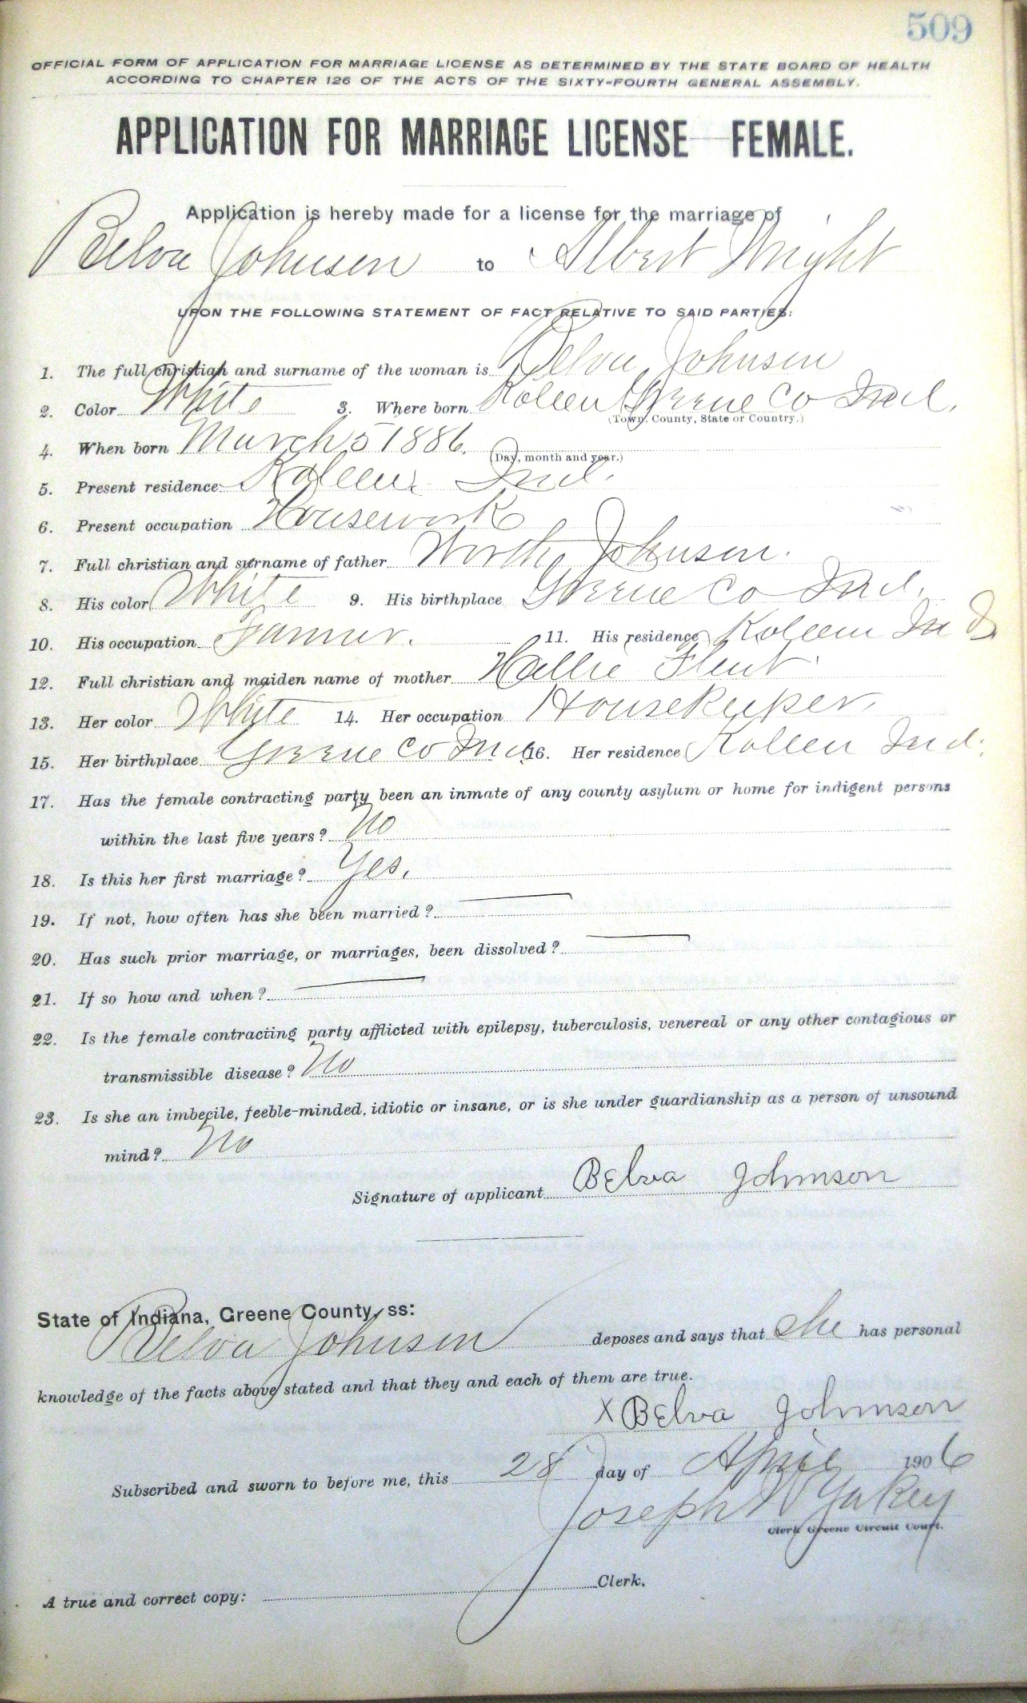 509
OFFICIAL FORM OF APPLICATION FOR MARRIAGE LICENSE AS DETERMINED BY THE STATE BOARD OF HEALTH
ACCORDING TO CHAPTER 126 OF THE ACTS OF THE SIXTY-FOURTH GENERAL ASSEMBLY.
APPLICATION FOR MARRIAGE LICENSE—FEMALE.
Application is hereby made for a license for the marriage of
Belva Johnson to Albert Wright
UPON THE FOLLOWING STATEMENT OF FACT RELATIVE TO SAID PARTIES:
1. The full christian and surname of the woman is Belva Johnson
2. Color White 3. Where born Koleen Greene Co Ind.
(Town, County, State or Country.)
4. When born March 5 1886.
(Day, month and year.)
5. Present residence Koleen Ind.
6. Present occupation Housework
7. Full christian and surname of father Worth Johnson.
8. His color White 9. His birthplace Greene Co Ind.
10. His occupation Farmer. 11. His residence Koleen Ind
12. Full christian and maiden name of mother Hallie Flent
13. Her color White 14. Her occupation Housekeeper.
15. Her birthplace Greene Co Ind 16. Her residence Koleen Ind.
17. Has the female contracting party been an inmate of any county asylum or home for indigent persons
within the last five years? No
18. Is this her first marriage? Yes.
19. If not, how often has she been married? —
20. Has such prior marriage, or marriages, been dissolved? —
21. If so how and when? —
22. Is the female contracting party afflicted with epilepsy, tuberculosis, venereal or any other contagious or
transmissible disease? No
23. Is she an imbecile, feeble-minded, idiotic or insane, or is she under guardianship as a person of unsound
mind? No
Signature of applicant Belva Johnson
State of Indiana, Greene County, ss:
Belva Johnson deposes and says that she has personal
knowledge of the facts above stated and that they and each of them are true.
X Belva Johnson
Subscribed and sworn to before me, this 28 day of April 1906
Joseph W Yakey
Clerk Greene Circuit Court.
A true and correct copy: Clerk.